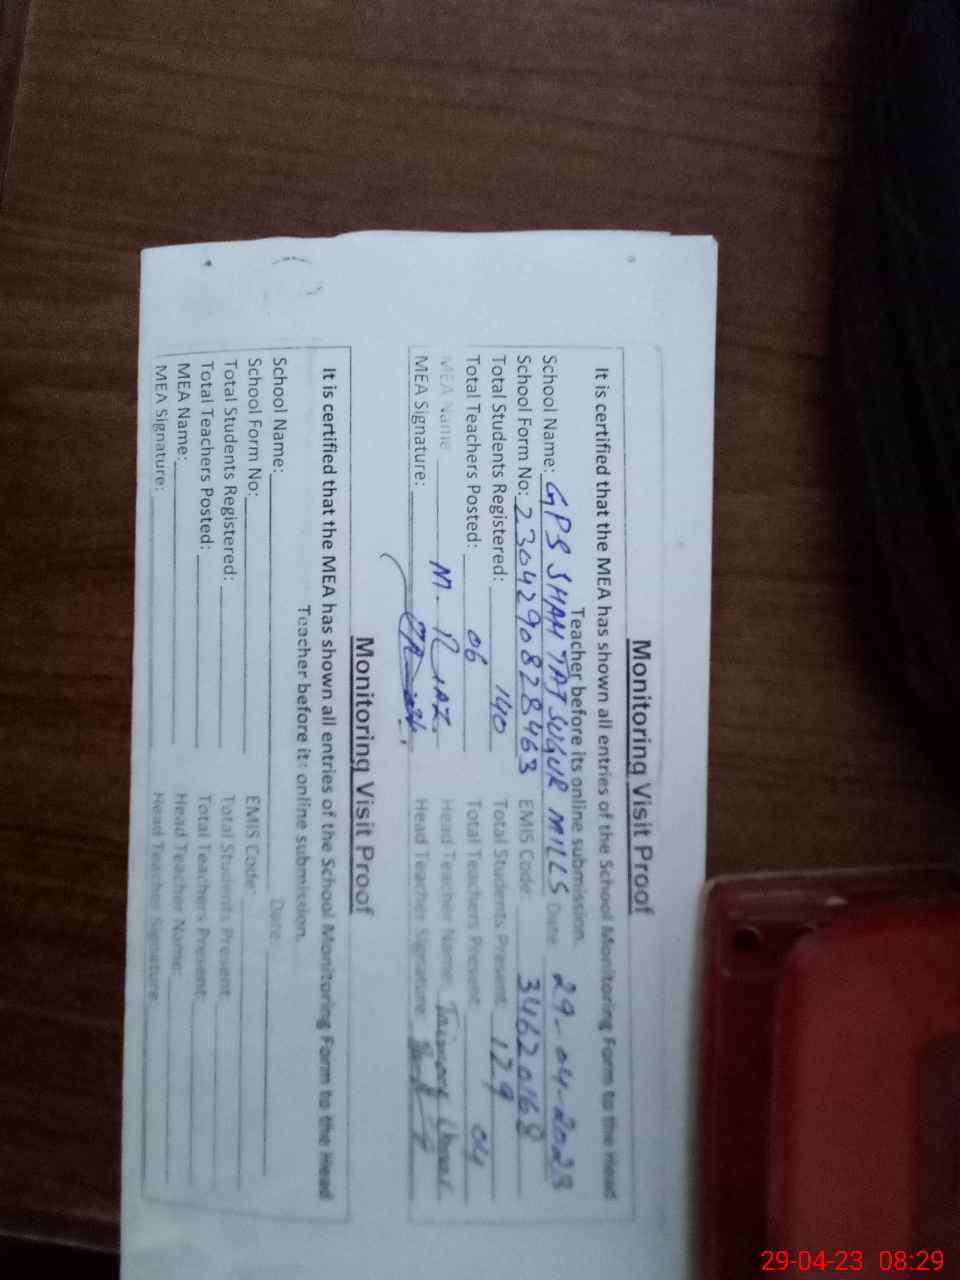 Monitoring Visit Proof
It is certified that the MEA has shown all entries of the School Monitoring Form to the Head
Teacher before its online submission.
School Name: GPS SHAH TAJ SUGUR MILLS Date: 29-04-2023
School Form No: 2304290828463 EMIS Code: 34620168
Total Students Registered: 140 Total Students Present 129
Total Teachers Posted: 06 Total Teachers Present 04
MEA Name M. RIAZ Head Teacher Name
MEA Signature: Head Teacher Signature
Monitoring Visit Proof
It is certified that the MEA has shown all entries of the School Monitoring Form to the Head
Teacher before its online submission.
School Name: Date:
School Form No: EMIS Code:
Total Students Registered: Total Students Present
Total Teachers Posted: Total Teachers Present
MEA Name: Head Teacher Name
MEA Signature: Head Teacher Signature
29-04-23 08:29